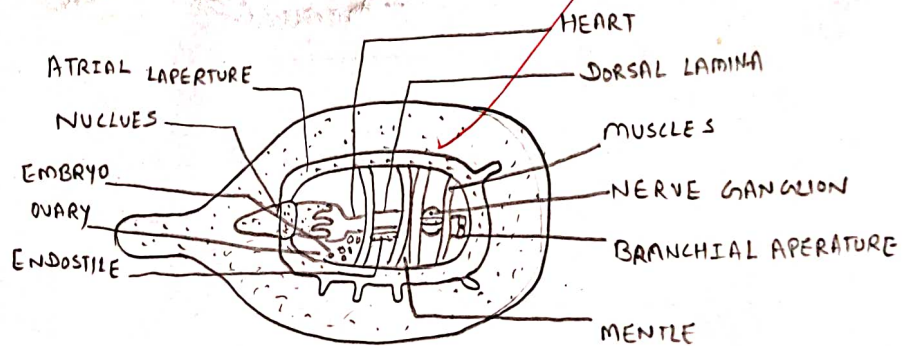 HEART
ATRIAL LAPERTURE
DORSAL LAMINA
NUCLUES
MUSCLES
EMBRYO
NERVE GANGLION
OVARY
BRANCHIAL APERATURE
ENDOSTILE
MENTLE